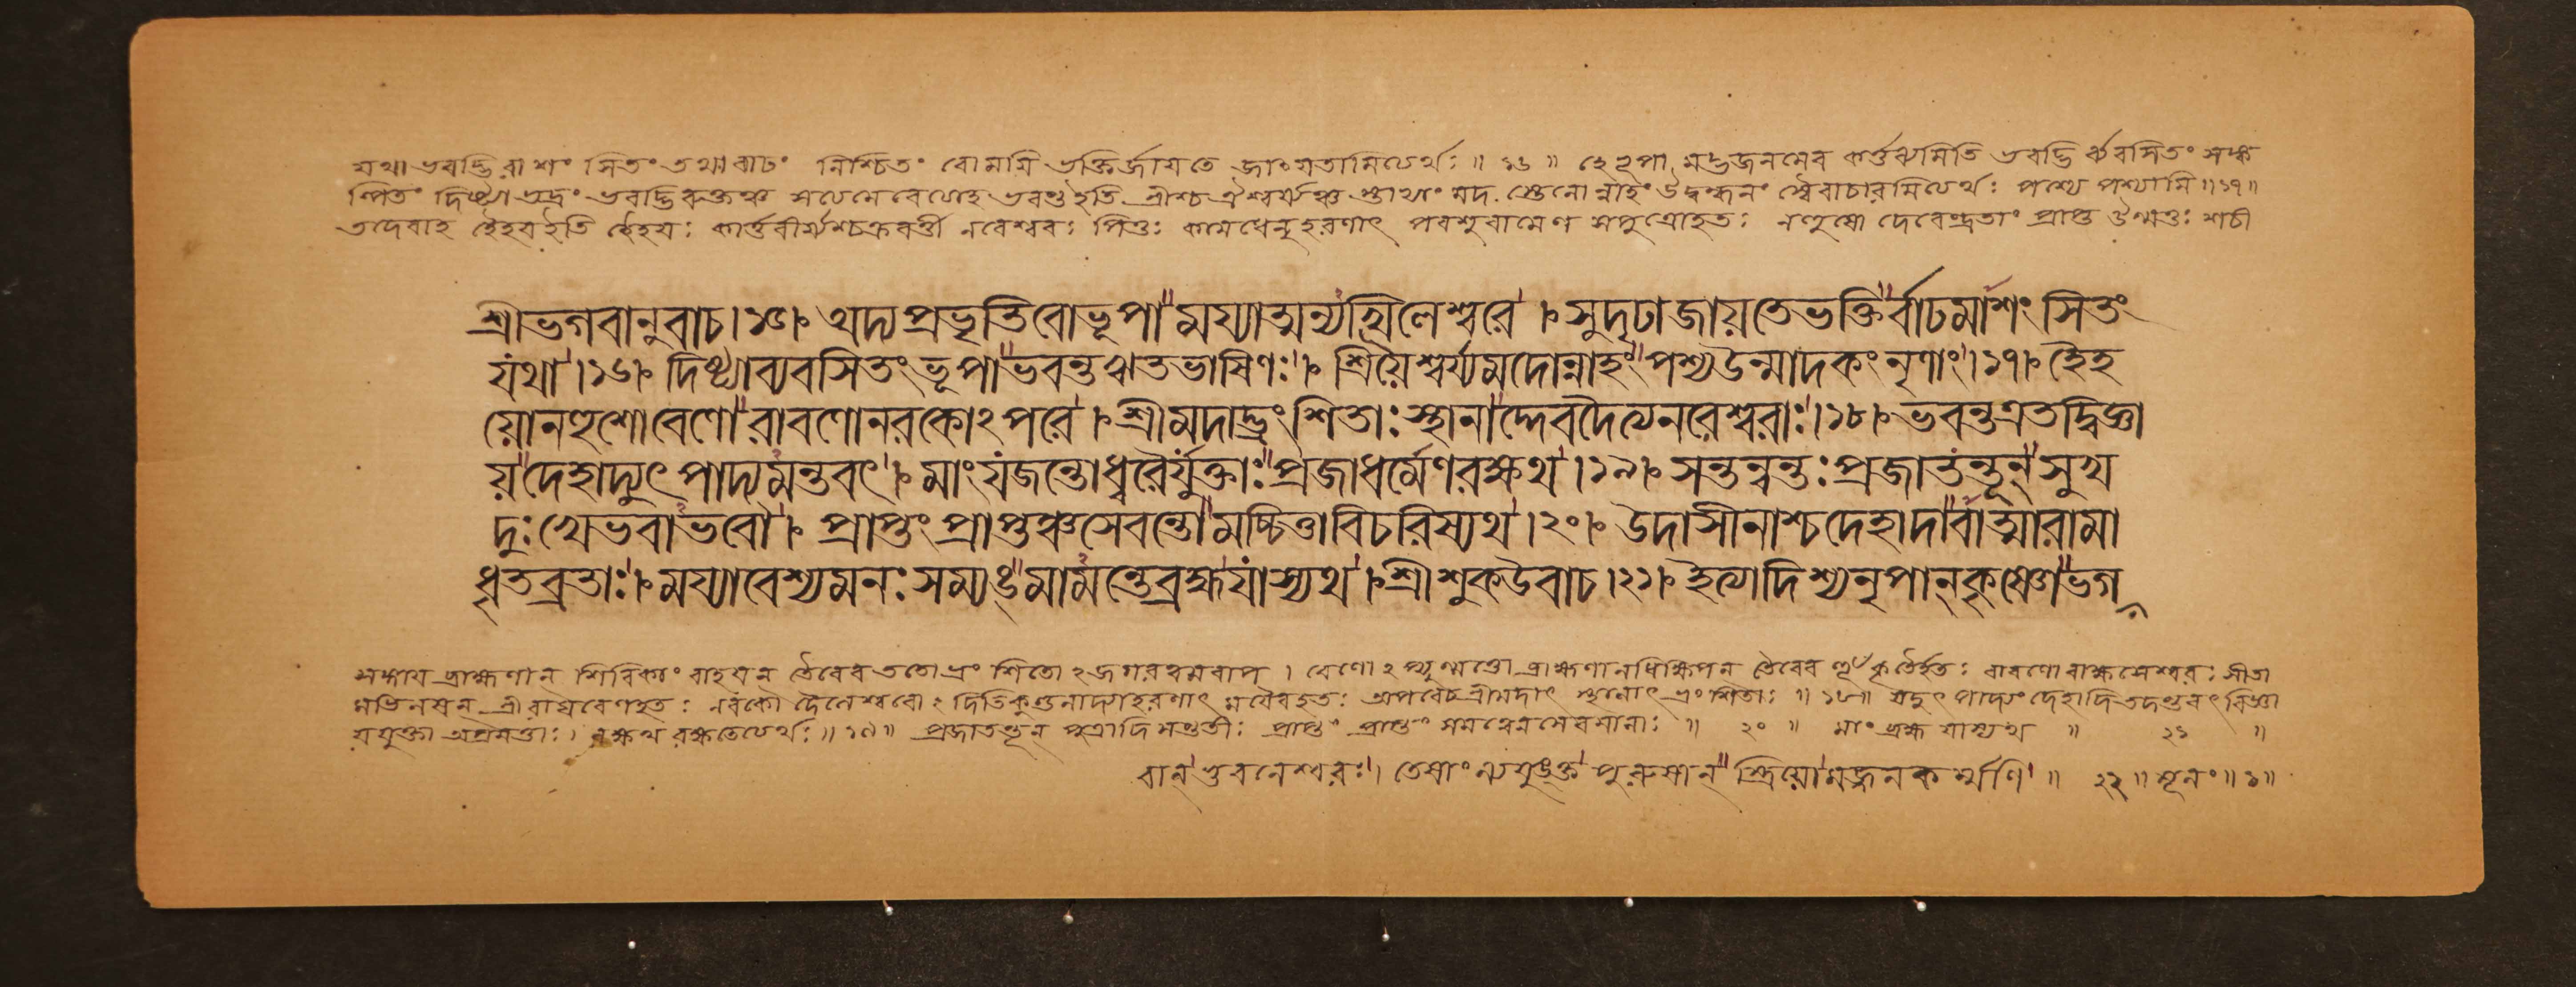 যথা ভবদ্ভিরাশংসিতং তথা বাঢং নিশ্চিতং বো মযি ভক্তির্জাযতে
হে ভবদ্ভির্ব্যবসিতং
দিষ্ট্যা ভদ্রং ইতি শ্রীশ্চ ঐশ্বর্য্যঞ্চ পশ্যে পশ্যামি॥১৭॥
তদেবাহ হৈহযইতি হৈহযঃ কার্ত্তবীর্য্যশ্চক্রবর্ত্তী নরেশ্বরঃ পিতুঃ কামধেনুহরণাৎ পরশুরামেণ সপুত্রোহতঃ নহুষো দেবেন্দ্রতাং প্রাপ্ত শচী
শ্রীভগবানুবাচ।১৫।৽ অদ্যপ্রভৃতিবোভূপা"ময্যাত্মন্যখিলেশ্বরে'।৽ সুদৃঢাজায়তেভক্তি"র্বাঢমাশংসিতং
যথা'।১৬।৽ দিষ্ট্যাব্যবসিতংভূপা"ভবন্তঋতভাষিণঃ'।৽ শ্রিয়ৈশ্বর্য্যমদোন্নাহং"পশ্যউন্মাদকংনৃণাং'।১৭।৽ হৈহ
য়োনহুশোবেণো"রাবণোনরকোঽপরে'।৽ শ্রীমদাদ্ভ্রংশিতাঃস্থানা"দ্দেবদৈত্যনরেশ্বরাঃ'।১৮।৽ ভবন্তএতদ্বিজ্ঞা
য়"দেহাদ্যুৎপাদ্যমন্তবৎ'।৽ মাংযজন্তোধ্বরৈর্যুক্তাঃ"প্রজাধর্ম্মেণরক্ষথ'।১৯।৽ সন্তন্বন্তঃপ্রজাতন্তূন্"সুখ
দুঃখেভবাভবৌ'।৽ প্রাপ্তংপ্রাপ্তঞ্চসেবন্তো"মচ্চিত্তাবিচরিষ্যথ'।২০।৽ উদাসীনাশ্চদেহাদা"বাত্মারামা
ধৃতব্রতাঃ'।৽ ময্যাবেশ্যমনঃসম্যঙ্"মামন্তেব্রহ্মযাস্যথ'।৽ শ্রীশুকউবাচ।২১।৽ ইত্যাদিশ্যনৃপান্কৃষ্ণো"ভগ
ব্রাহ্মণান্ শিবিকাং বাহযন্ তৈরেব ততো ভ্রংশিতো ঽজগরত্বমবাপ। বেণো ব্রাহ্মণানধিক্ষিপন্ তৈরেব হুংকৃতৈর্হতঃ রাবণো রাক্ষসেশ্বরঃ সীতা
শ্রীরাঘবেণহতঃ নরকো দৈত্যেশ্বরো ঽদিতিকুণ্ডলাদ্যাহরণাৎ মযৈবহতঃ অপরেচ শ্রীমদাৎ স্থানাৎ ভ্রংশিতাঃ॥১৮॥ যদুৎপাদ্যং দেহাদি তদন্তবৎ বিজ্ঞা
য যুক্তা অপ্রমত্তাঃ। রক্ষথ রক্ষতেত্যর্থঃ॥১৯॥ প্রজাতন্তূন্ পুত্রাদি সন্ততীঃ প্রাপ্তং প্রাপ্তং সেবমানাঃ॥ ২০॥ মাং ব্রহ্ম যাস্যথ॥ ২১॥
বান্'ভুবনেশ্বরঃ'। তেষাং ন্যযুঙ্ক্ত পুরুষান্"স্ত্রিয়োমজ্জনকর্ম্মণি'॥ ২২॥ মূলং॥১॥